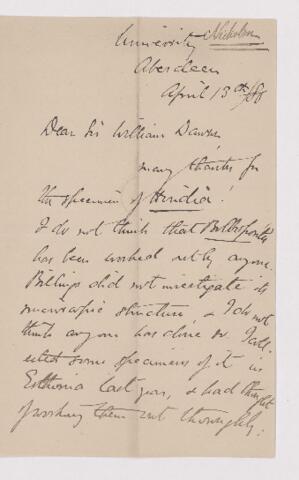 Nicholson
University
Aberdeen
April 13th /88
Dear Sir William Dawson,
Many thanks for
the specimen of
I do not think that
has been worked out by anyone.
Billings did not investigate its
microscopic structure, & I do not
think anyone has done so. I coll-
ected some specimens of it in
Esthonia last year, & had thought
of working them out thoroughly: